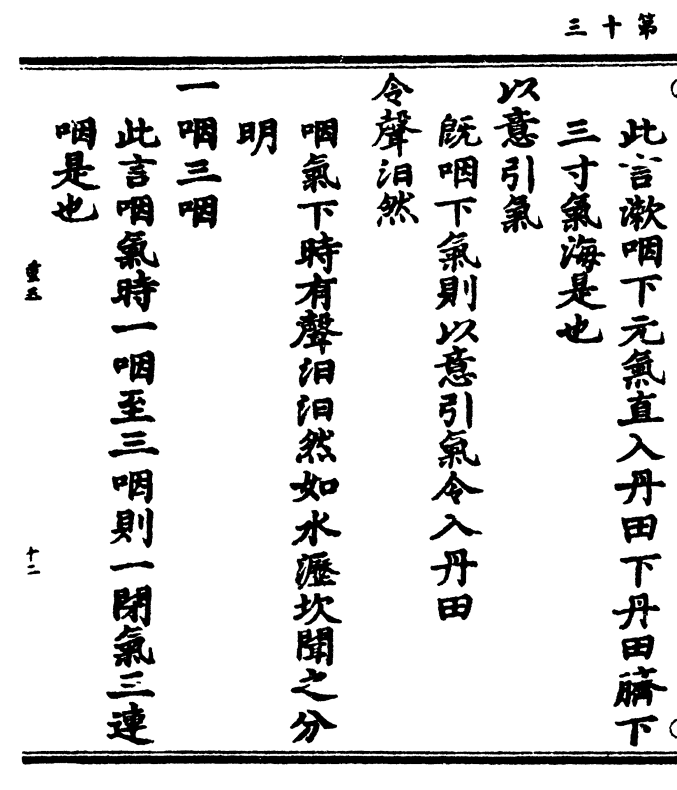 第十三
此言漱咽下元氣直入丹田下丹田臍下
三寸氣海是也
以意引氣
既咽下氣則以意引氣令入丹田
令聲汩然
咽氣下時有聲汩汩然如水瀝坎聞之分
明
一咽三咽
此言咽氣時一咽至三咽則一閉氣三連
咽是也
重五
十二